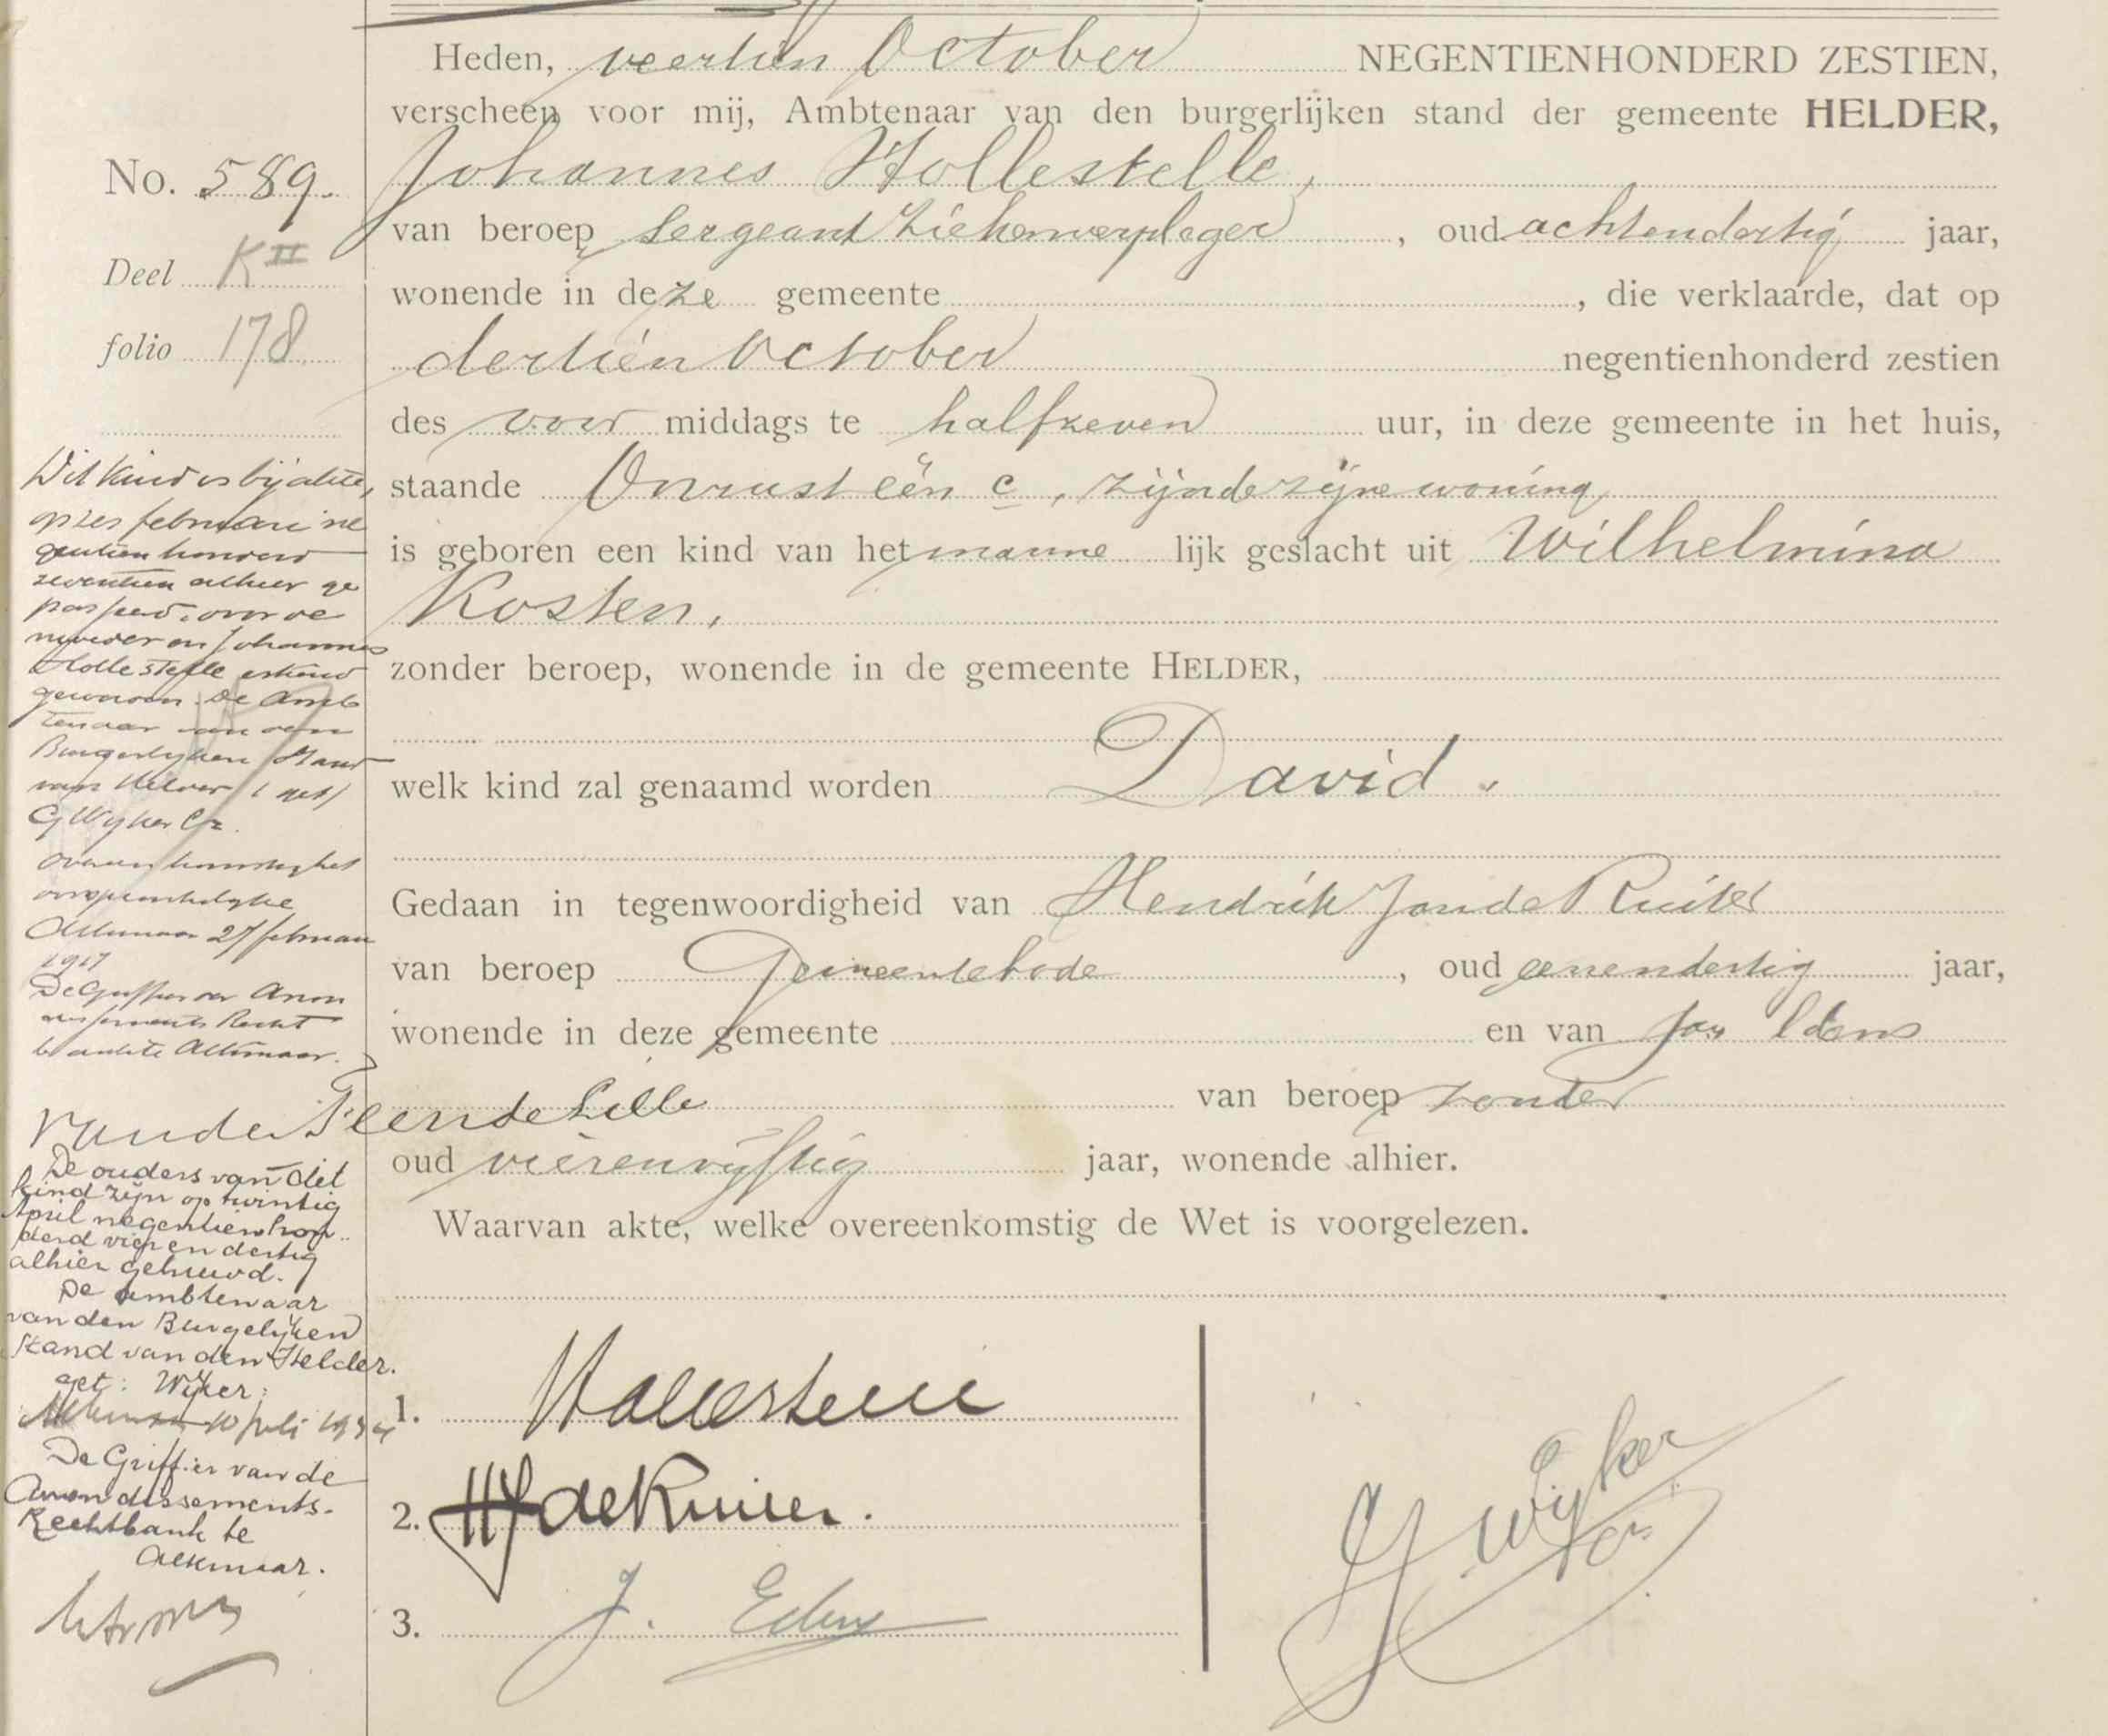 Heden, veertien October NEGENTIENHONDERD ZESTIEN,
verscheen voor mij, Ambtenaar van den burgerlijken stand der gemeente HELDER,
Johannes Hollestelle,
van beroep Sergeant Ziekenverpleger, oud achtendertig jaar,
wonende in deze gemeente, die verklaarde, dat op
dertien October negentienhonderd zestien
des voor middags te halfzeven uur, in deze gemeente in het huis,
staande Onrust één c, zijnde zijne woning
is geboren een kind van het manne lijk geslacht uit Wilhelmina
Kosten,
zonder beroep, wonende in de gemeente HELDER,
welk kind zal genaamd worden David.
Gedaan in tegenwoordigheid van Hendrik Jan de Ruiter
van beroep Gemeentebode, oud eenendertig jaar,
wonende in deze gemeente en van Jan Edens
van beroep zonder
oud vierenvijftig jaar, wonende alhier.
Waarvan akte, welke overeenkomstig de Wet is voorgelezen.
1. Hollestelle
2. HJ de Ruiter.
3. J. Edens
G Wijker Cz.
No. 589.
Deel K II
folio 178
Dit kind is bij akte,
op zes februari ne
gentienhonderd
zeventien alhier ge
passeerd, door de
moeder en Johannes
Hollestelle erkend
geworden. De Amb
tenaar van den
Burgerlijken Stand
van Helder (get)
G Wijker Cz.
Overeenkomstig het
oorspronkelijke
Alkmaar 27 februari
1917
De Griffier der Arron
dissements Recht
bank te Alkmaar.
De ouders van dit
kind zijn op twintig
April negentienhon-
derd vier en dertig
alhier gehuwd.
De ambtenaar
van den Burgelijken
Stand van den Helder.
get: Wijker:
Alkmaar 10 juli 1934
De Griffier van de
Arrondissements-
Rechtbank te
Alkmaar.